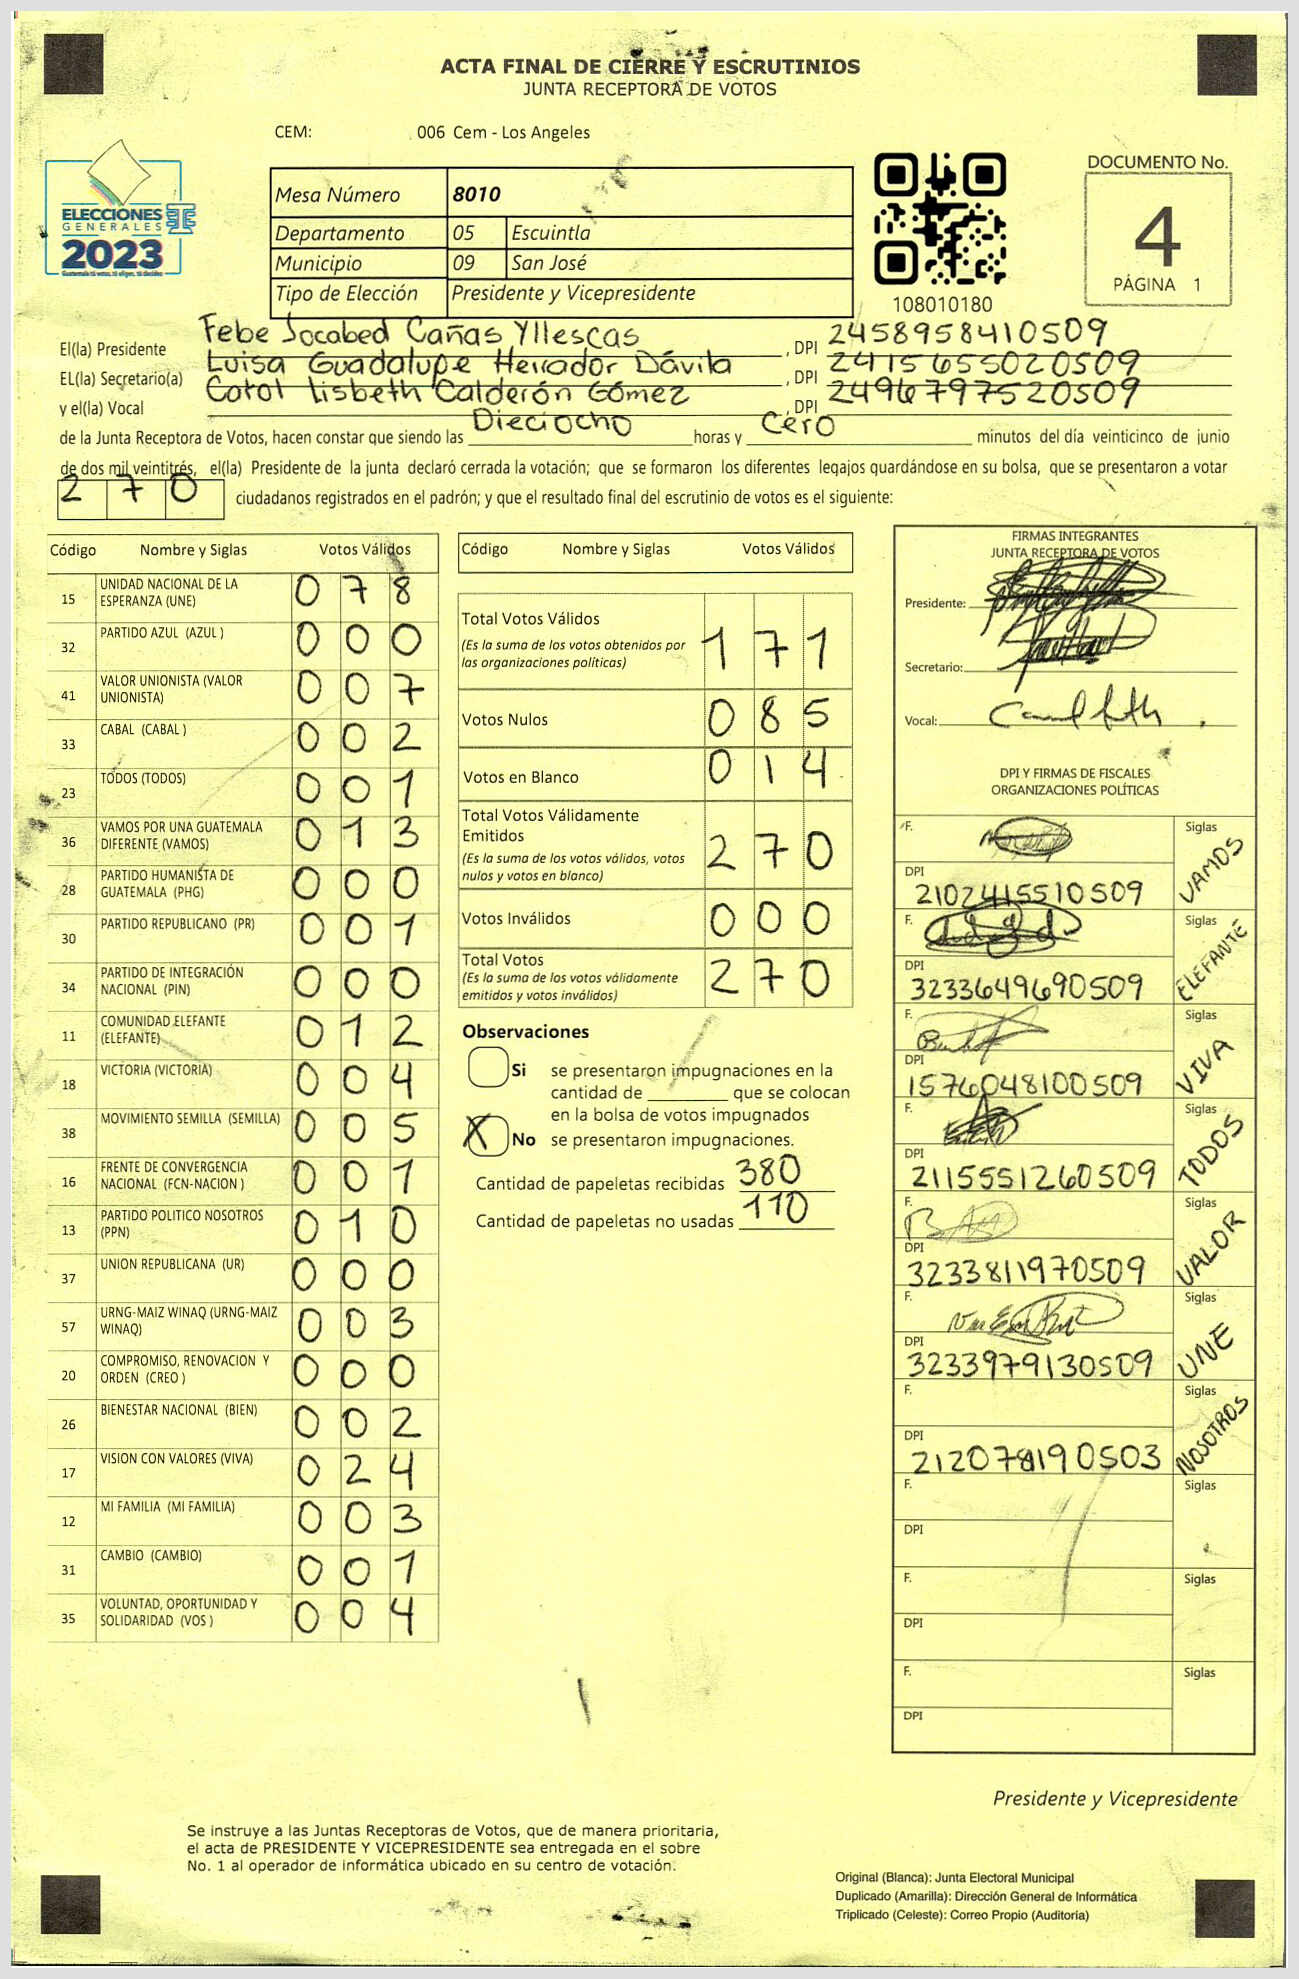 ACTA FINAL DE CIERRE Y ESCRUTINIOS
JUNTA RECEPTORA DE VOTOS
CEM: 006 Cem - Los Angeles
ELECCIONES
GENERALES
2023
Mesa Número 8010
Departamento 05 Escuintla
Municipio 09 San José
Tipo de Elección Presidente y Vicepresidente
108010180
DOCUMENTO No.
4
PÁGINA 1
El(la) Presidente Febe Jocabed Cañas Yllescas, DPI 2458958410509
EL(la) Secretario(a) Luisa Guadalupe Herrador Dávila, DPI 2415655020509
y el(la) Vocal Carol Lisbeth Calderón Gómez, DPI 2496797520509
de la Junta Receptora de Votos, hacen constar que siendo las Dieciocho horas y Cero minutos del día veinticinco de junio
de dos mil veintitrés, el(la) Presidente de la junta declaró cerrada la votación; que se formaron los diferentes legajos guardándose en su bolsa, que se presentaron a votar
270 ciudadanos registrados en el padrón; y que el resultado final del escrutinio de votos es el siguiente:
Código Nombre y Siglas Votos Válidos
15 UNIDAD NACIONAL DE LA ESPERANZA (UNE) 078
32 PARTIDO AZUL (AZUL ) 000
41 VALOR UNIONISTA (VALOR UNIONISTA) 007
33 CABAL (CABAL ) 002
23 TODOS (TODOS) 001
36 VAMOS POR UNA GUATEMALA DIFERENTE (VAMOS) 013
28 PARTIDO HUMANISTA DE GUATEMALA (PHG) 000
30 PARTIDO REPUBLICANO (PR) 001
34 PARTIDO DE INTEGRACIÓN NACIONAL (PIN) 000
11 COMUNIDAD ELEFANTE (ELEFANTE) 012
18 VICTORIA (VICTORIA) 004
38 MOVIMIENTO SEMILLA (SEMILLA) 005
16 FRENTE DE CONVERGENCIA NACIONAL (FCN-NACION ) 001
13 PARTIDO POLITICO NOSOTROS (PPN) 010
37 UNION REPUBLICANA (UR) 000
57 URNG-MAIZ WINAQ (URNG-MAIZ WINAQ) 003
20 COMPROMISO, RENOVACION Y ORDEN (CREO ) 000
26 BIENESTAR NACIONAL (BIEN) 002
17 VISION CON VALORES (VIVA) 024
12 MI FAMILIA (MI FAMILIA) 003
31 CAMBIO (CAMBIO) 001
35 VOLUNTAD, OPORTUNIDAD Y SOLIDARIDAD (VOS ) 004
Código Nombre y Siglas Votos Válidos
Total Votos Válidos 171
(Es la suma de los votos obtenidos por
las organizaciones políticas)
Votos Nulos 085
Votos en Blanco 014
Total Votos Válidamente
Emitidos 270
(Es la suma de los votos válidos, votos
nulos y votos en blanco)
Votos Inválidos 000
Total Votos 270
(Es la suma de los votos válidamente
emitidos y votos inválidos)
Observaciones
Si se presentaron impugnaciones en la
cantidad de ________ que se colocan
en la bolsa de votos impugnados
X No se presentaron impugnaciones.
Cantidad de papeletas recibidas 380
Cantidad de papeletas no usadas 110
FIRMAS INTEGRANTES
JUNTA RECEPTORA DE VOTOS
Presidente:
Secretario:
Vocal:
DPI Y FIRMAS DE FISCALES
ORGANIZACIONES POLÍTICAS
F. Siglas VAMOS
DPI 2102415510509
F. Siglas ELEFANTE
DPI 3233649690509
F. Siglas VIVA
DPI 1576048100509
F. Siglas TODOS
DPI 2115551260509
F. Siglas VALOR
DPI 3233811970509
F. Siglas UNE
DPI 3233979130509
F. Siglas NOSOTROS
DPI
F. Siglas
DPI
F. Siglas
DPI
F. Siglas
DPI
Presidente y Vicepresidente
Se instruye a las Juntas Receptoras de Votos, que de manera prioritaria,
el acta de PRESIDENTE Y VICEPRESIDENTE sea entregada en el sobre
No. 1 al operador de informática ubicado en su centro de votación.
Original (Blanca): Junta Electoral Municipal
Duplicado (Amarilla): Dirección General de Informática
Triplicado (Celeste): Correo Propio (Auditoría)